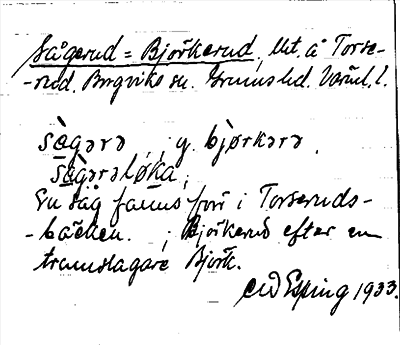 Sågerud = Björkerud, Ut. å Torse-
-rud. Borgviks sn. Grums hd. Värml. l.
sὲgərə, ; y. bjørkərə.
sὲgərəløka;
En såg fanns förr i Torseruds-
-bäcken. ; Björkerud efter en
trumslagare Björk.
Esping 1933.